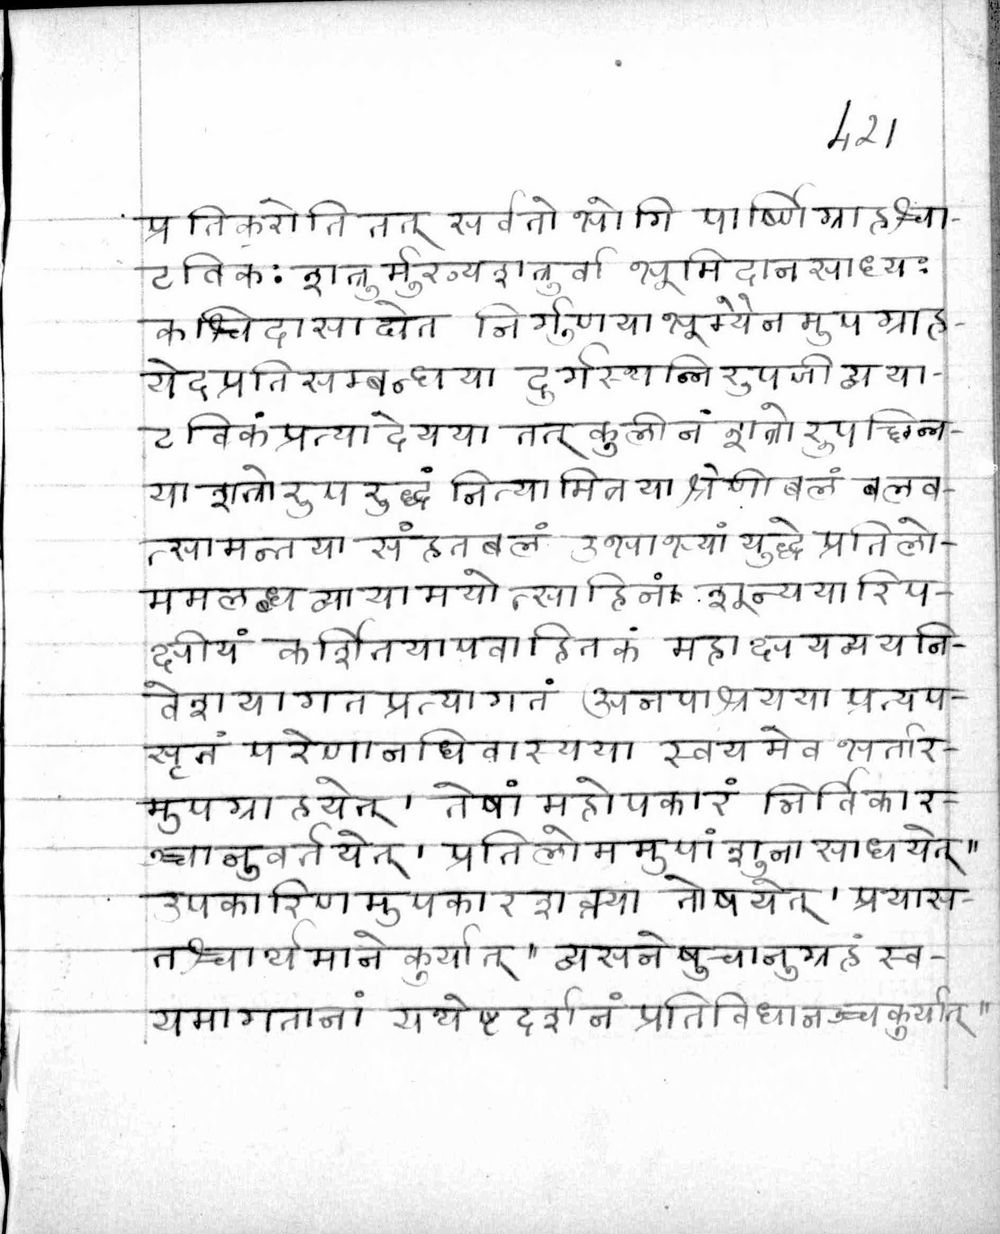 421
प्रतिकरोति तत् सर्वतो भोगि पार्ष्णिग्राहश्चा-
टविकः शत्रुर्मुख्यशत्रुर्वा भूमिदानसाध्यः
कश्चिदासाद्येत निर्गुणयाभूम्यैनमुपग्राह-
येदप्रतिसम्बन्धया दुर्गस्थन्निरुपजीव्यया-
टविकंप्रत्यादेयया तत्कुलीनं शत्रोरुपच्छिन्न-
याशत्रोरुपरुद्धं नित्यामित्रया श्रेणीबलं बलव-
त्सामन्तया संहतबलं उभाभ्यां युद्धे प्रतिलो-
ममलब्धव्यायामयोत्साहिनां शून्ययारिप-
क्षीयं कर्शितयापवाहितकं महाक्षयव्ययनि-
वेशयागतप्रत्यागतं अनपाश्रयया प्रत्यप-
सृतं परेणानधिवास्यया स्वयमेव भर्तार-
मुपग्राहयेत्। तेषां महोपकारं निर्विकार-
ञ्चानुवर्तयेत्। प्रतिलोममुपांशुना साधयेत्॥
उपकारिणमुपकारशक्त्या तोषयेत्। प्रयास-
तश्चार्थमाने कुर्यात्॥ व्यसनेषुचानुग्रहं स्व-
यमागतानां यथेष्टदर्शनं प्रतिविधानञ्चकुर्यात्॥